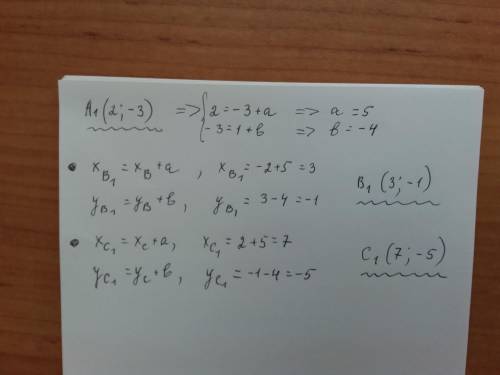 A₁(2;-3) => { 2=-3+a => a=5
-3=1+b => b=-4
• x_B₁=x_B+a , x_B₁=-2+5=3
y_B₁=y_B+b, y_B₁=3-4=-1
B₁(3;-1)
• x_C₁=x_C+a, x_C₁=2+5=7
y_C₁=y_C+b, y_C₁=-1-4=-5
C₁(7;-5)